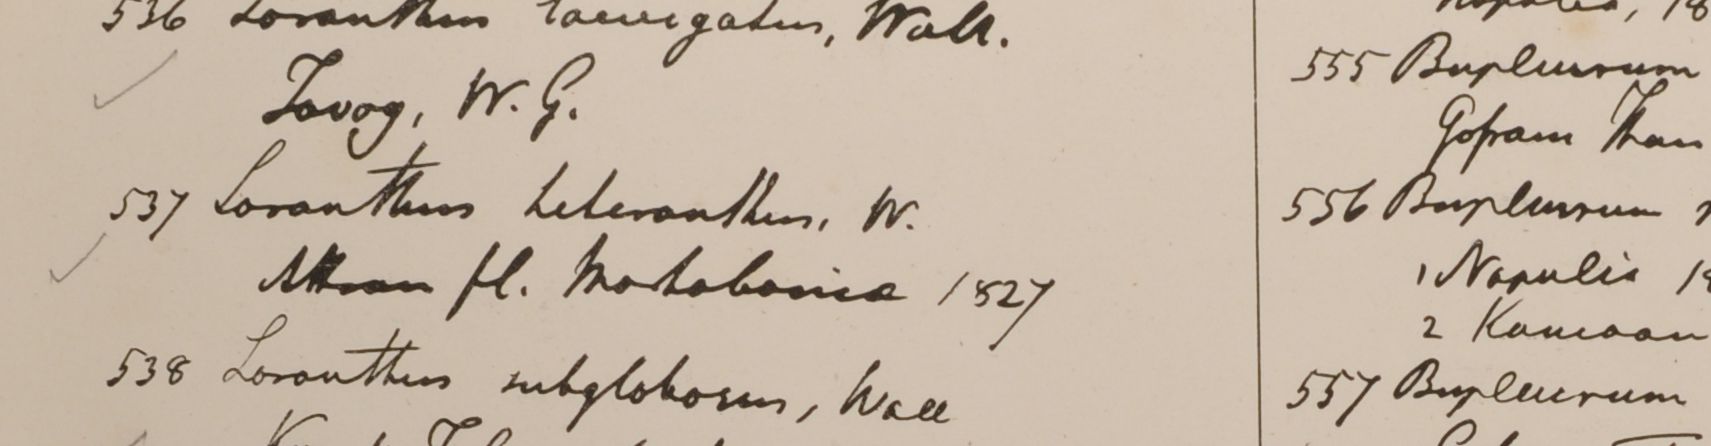 536 Loranthus laevigatus, Wall.
Tavoy, W. G.
537 Loranthus heteranthus, W.
Attran fl. Moalabanica 1827
538 Loranthus subglobosus, Wall
555 Bupleurum
556 Bupleurum
1 Napalia 18
2 Kamaon
557 Bupleurum